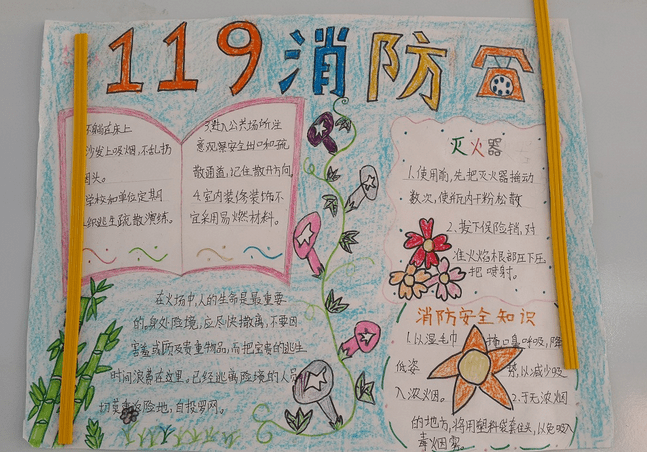 119消防
不躺在床上
沙发上吸烟,不乱扔
头。
学校和单位定期
织逃生疏散演练。
3.进入公共场所注
意观察安全出口和疏
散通道,记住散开方向
4.室内装修装饰不
宜采用易燃材料。
灭火器
1.使用前,先把灭火器摇动
数次,使瓶内干粉松散
2.拔下保险销,对
准火焰根部压下压
把喷射。
在火场中,人的生命是最重要
的,身处险境,应尽快撤离,不要因
害羞或顾及贵重物品,而把宝贵的逃生
时间浪费在这里。已经逃离险境的人员
切莫重返险地,自投罗网。
消防安全知识
1.以湿毛巾掩口鼻呼吸,降
低姿势,以减少吸
入浓烟。
2.于无浓烟
的地方,将用塑料袋套住头,以免吸入
毒烟雾。